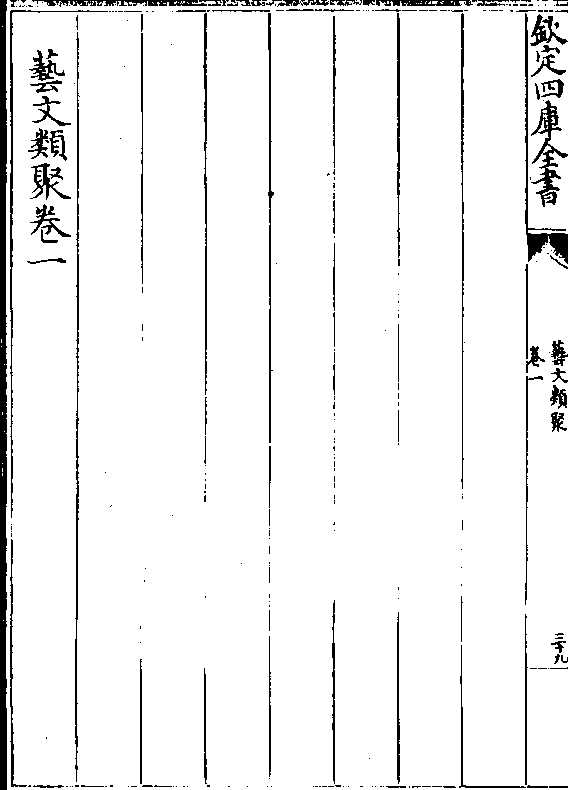 欽定四庫全書
藝文類聚
卷一
三十九
藝文類聚卷一